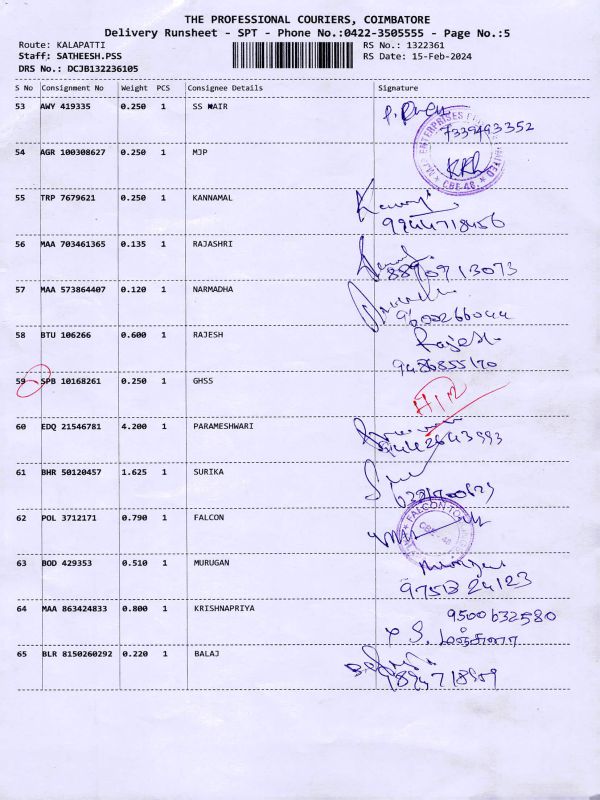 THE PROFESSIONAL COURIERS, COIMBATORE
Delivery Runsheet - SPT - Phone No.:0422-3505555 - Page No.:5
Route: KALAPATTI RS No.: 1322361
Staff: SATHEESH.PSS RS Date: 15-Feb-2024
DRS No.: DCJB132236105
S No Consignment No Weight PCS Consignee Details Signature
53 AWY 419335 0.250 1 SS NAIR
7339493352
ENTERPRISES
CBE-48
54 AGR 100308627 0.250 1 MJP
55 TRP 7679621 0.250 1 KANNAMAL
9944718456
56 MAA 703461365 0.135 1 RAJASHRI
8870913073
57 MAA 573864407 0.120 1 NARMADHA
9600266044
58 BTU 106266 0.600 1 RAJESH Rajesh
9486855170
59 SPB 10168261 0.250 1 GHSS
60 EDQ 21546781 4.200 1 PARAMESHWARI
61 BHR 50120457 1.625 1 SURIKA
62 POL 3712171 0.790 1 FALCON
FALCON
CBE-48
63 BOD 429353 0.510 1 MURUGAN
9751324123
64 MAA 863424833 0.800 1 KRISHNAPRIYA 9500632580
65 BLR 8150260292 0.220 1 BALAJ